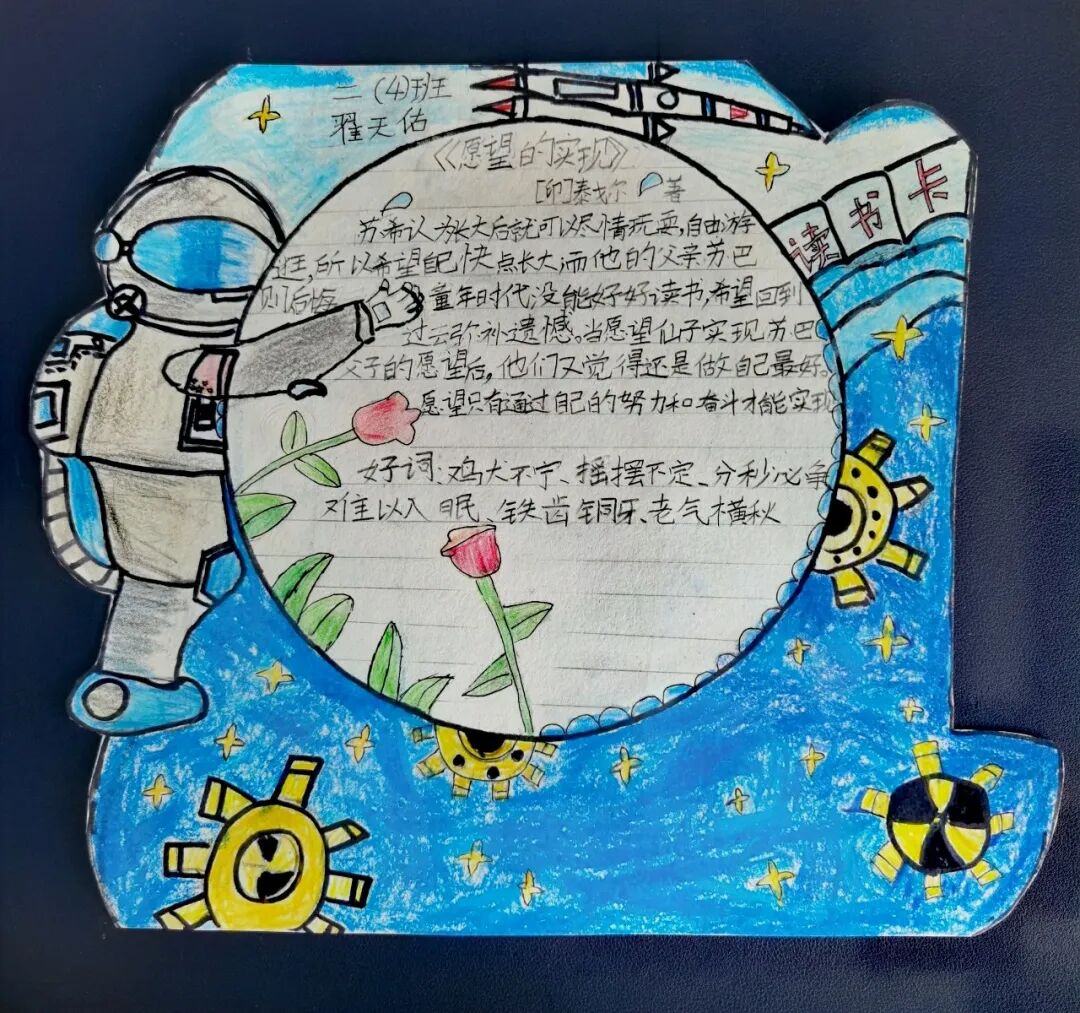 二(4)班
翟天佑
《愿望的实现》
[印]泰戈尔 著
读书卡
苏希认为长大后就可以尽情玩耍,自由游
逛,所以希望自己快点长大,而他的父亲苏巴
则后悔童年时代没能好好读书,希望回到
过去弥补遗憾。当愿望仙子实现苏巴
父子的愿望后,他们又觉得还是做自己最好。
愿望只有通过自己的努力和奋斗才能实现
好词:鸡犬不宁、摇摆不定、分秒必争
难以入眠、铁齿铜牙、老气横秋